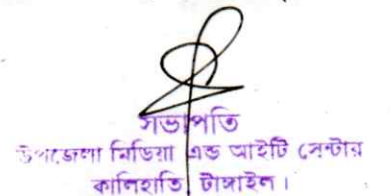 সভাপতি
উপজেলা মিডিয়া এন্ড আইটি সেন্টার
কালিহাতি টাঙ্গাইল।